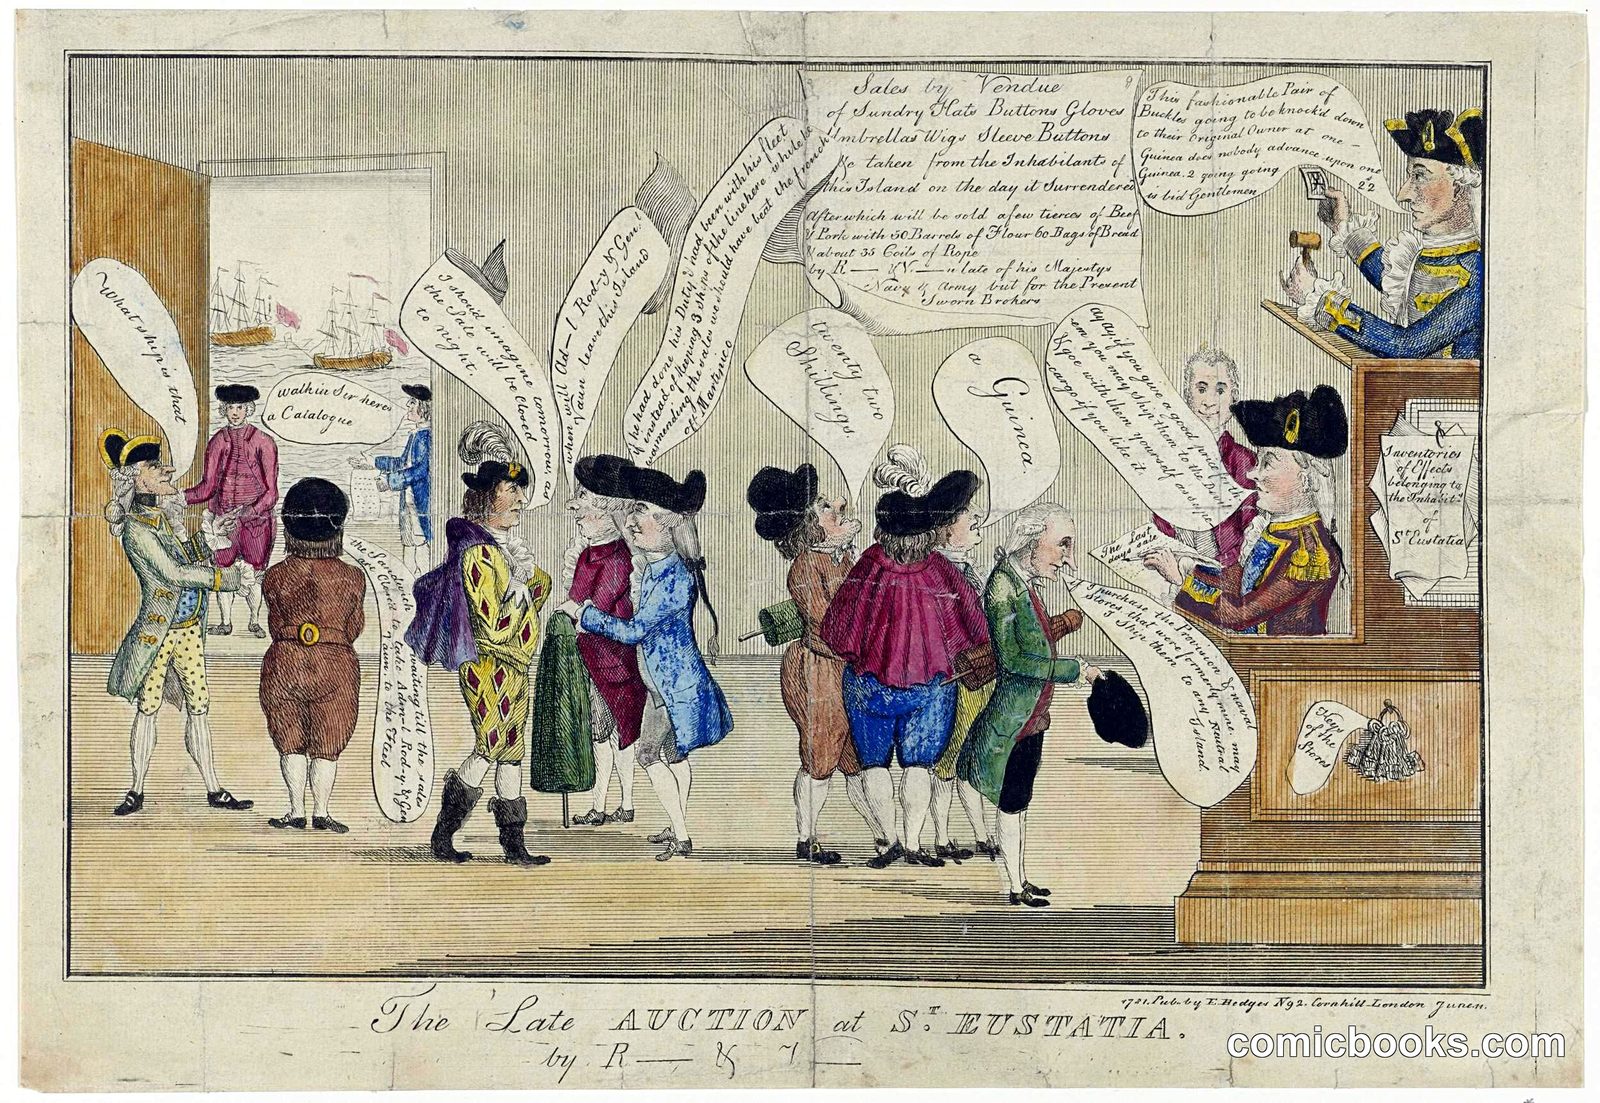 Sales by Vendue
of Sundry Hats Buttons Gloves
Umbrellas Wigs Sleeve Buttons
&c taken from the Inhabitants of
this Island on the day it Surrendered
After which will be sold a few tierces of Beef
& Pork with 50 Barrels of Flour 60 Bags of Bread
& about 35 Coils of Rope
by R— & V—n late of his Majestys
Navy & Army but for the Present
Sworn Brokers
This fashionable Pair of
Buckles going to be knock'd down
to their Original Owner at one
Guinea does nobody advance upon one
Guinea. 2 going going 22
is bid Gentlemen
What ship is that
Walk in Sir heres
a Catalogue
I should imagine tomorrow as
the Sale will be Closed
to night.
when will Ad—l Rod—y & Gen.l
Vaun leave this Island
if he had done his Duty & had been with his fleet
instead of keeping 3 Ships of the line here while he
wa mending the sales we should have beat the french
off Martinico
twenty two
Shillings.
a
Guinea.
ay ay if you give a good price for th
em you may ship them to the Devil
& goe with them yourself as super
cargo if you like it
The Last
days sale
I purchase the Provision & naval
Stores that were formerly mine. may
I Ship them to any Neutral
Island.
the Sandwich waiting till the sales
are Closed to take Adm—l Rod—y & Gen
Vaun. to the Fleet
Inventories
of Effects
belonging to
the Inhabit.ts
of
St Eustatia
Keys
of the
Stores
1781. Pub. by E. Hedges No 92. Cornhill London June 11.
The Late AUCTION at St. EUSTATIA.
by R— & V—
comicbooks.com